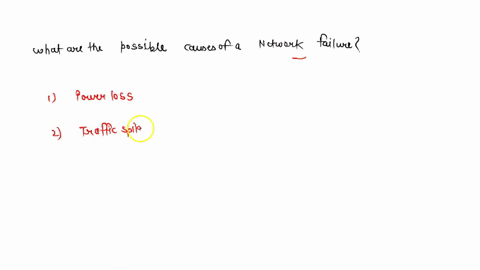 what are the possible causes of a Network failure?
1) Power loss
2) Traffic spik